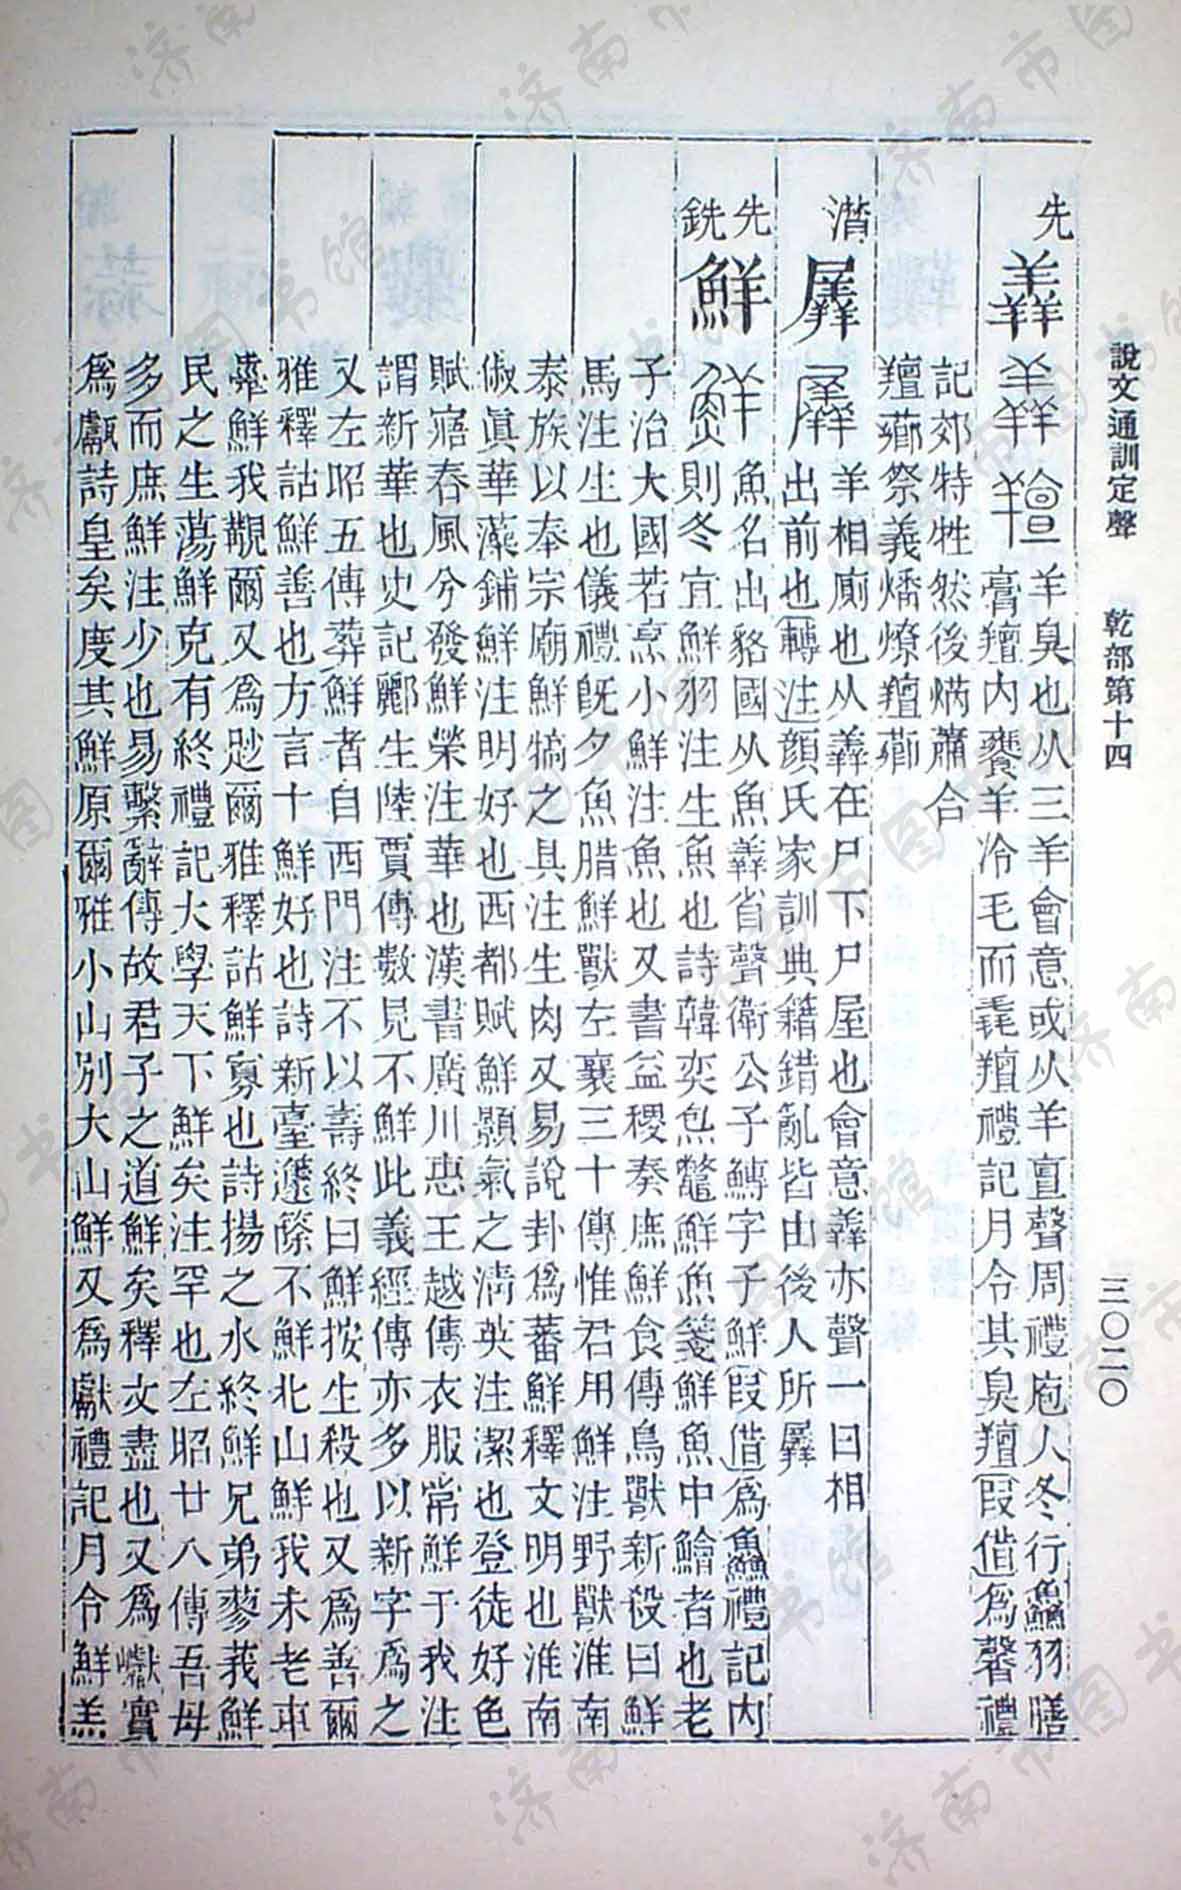 說文通訓定聲 乾部第十四 三〇二〇
先 羴 羊臭也从三羊會意或从羊亶聲周禮庖人冬行鱻羽膳
膏羶內饔羊冷毛而毳羶禮記月令其臭羶叚借爲馨禮
記郊特牲然後焫蕭合
羶薌祭義燔燎羶薌
潸 羼 羊相廁也从羴在尸下尸屋也會意羴亦聲一曰相
出前也轉注顏氏家訓典籍錯亂皆由後人所羼
先 銑 鮮 魚名出貉國从魚羴省聲衛公子鱄字子鮮叚借爲鱻禮記內
則冬宜鮮羽注生魚也詩韓奕炰鼈鮮魚箋鮮魚中鱠者也老
子治大國若烹小鮮注魚也又書益稷奏庶鮮食傳鳥獸新殺曰鮮
馬注生也儀禮旣夕魚腊鮮獸左襄三十傳惟君用鮮注野獸淮南
泰族以奉宗廟鮮犒之具注生肉又易說卦爲蕃鮮釋文明也淮南
俶眞華藻鋪鮮注明好也西都賦鮮顥氣之淸英注潔也登徒好色
賦寤春風兮發鮮榮注華也漢書廣川惠王越傳衣服常鮮于我注
謂新華也史記酈生陸賈傳數見不鮮此義經傳亦多以新字爲之
又左昭五傳葬鮮者自西門注不以壽終曰鮮按生殺也又爲善爾
雅釋詁鮮善也方言十鮮好也詩新臺籧篨不鮮北山鮮我未老車
舝鮮我覯爾又爲尟爾雅釋詁鮮寡也詩揚之水終鮮兄弟蓼莪鮮
民之生蕩鮮克有終禮記大學天下鮮矣注罕也左昭廿八傳吾母
多而庶鮮注少也易繫辭傳故君子之道鮮矣釋文盡也又爲巘實
爲甗詩皇矣度其鮮原爾雅小山別大山鮮又爲獻禮記月令鮮羔